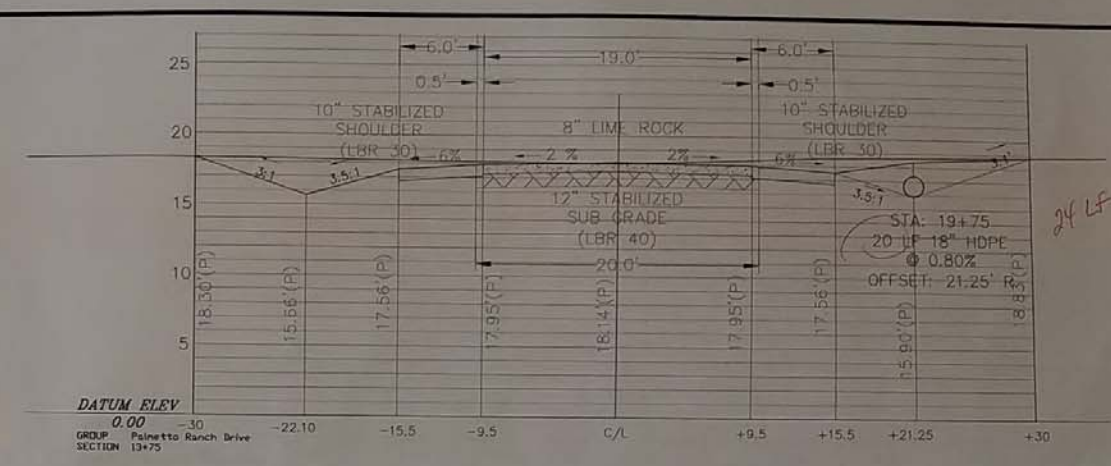 6.0' 19.0' 6.0'
25
0.5' 0.5'
10" STABILIZED SHOULDER (LBR 30)
8" LIME ROCK
10" STABILIZED SHOULDER (LBR 30)
20
6% 2 % 2% 6%
3:1 3.5:1 3.5:1 3:1
15
12" STABILIZED
SUB GRADE
(LBR 40)
STA: 19+75
20 LF 18" HDPE
@ 0.80%
OFFSET: 21.25' R
24 LF
10
20.0'
18.30'(P)
15.66'(P)
17.56'(P)
17.95'(P)
18.14'(P)
17.95'(P)
17.56'(P)
15.90'(P)
5
DATUM ELEV
0.00
-30 -22.10 -15.5 -9.5 C/L +9.5 +15.5 +21.25 +30
GROUP Palmetto Ranch Drive
SECTION 13+75